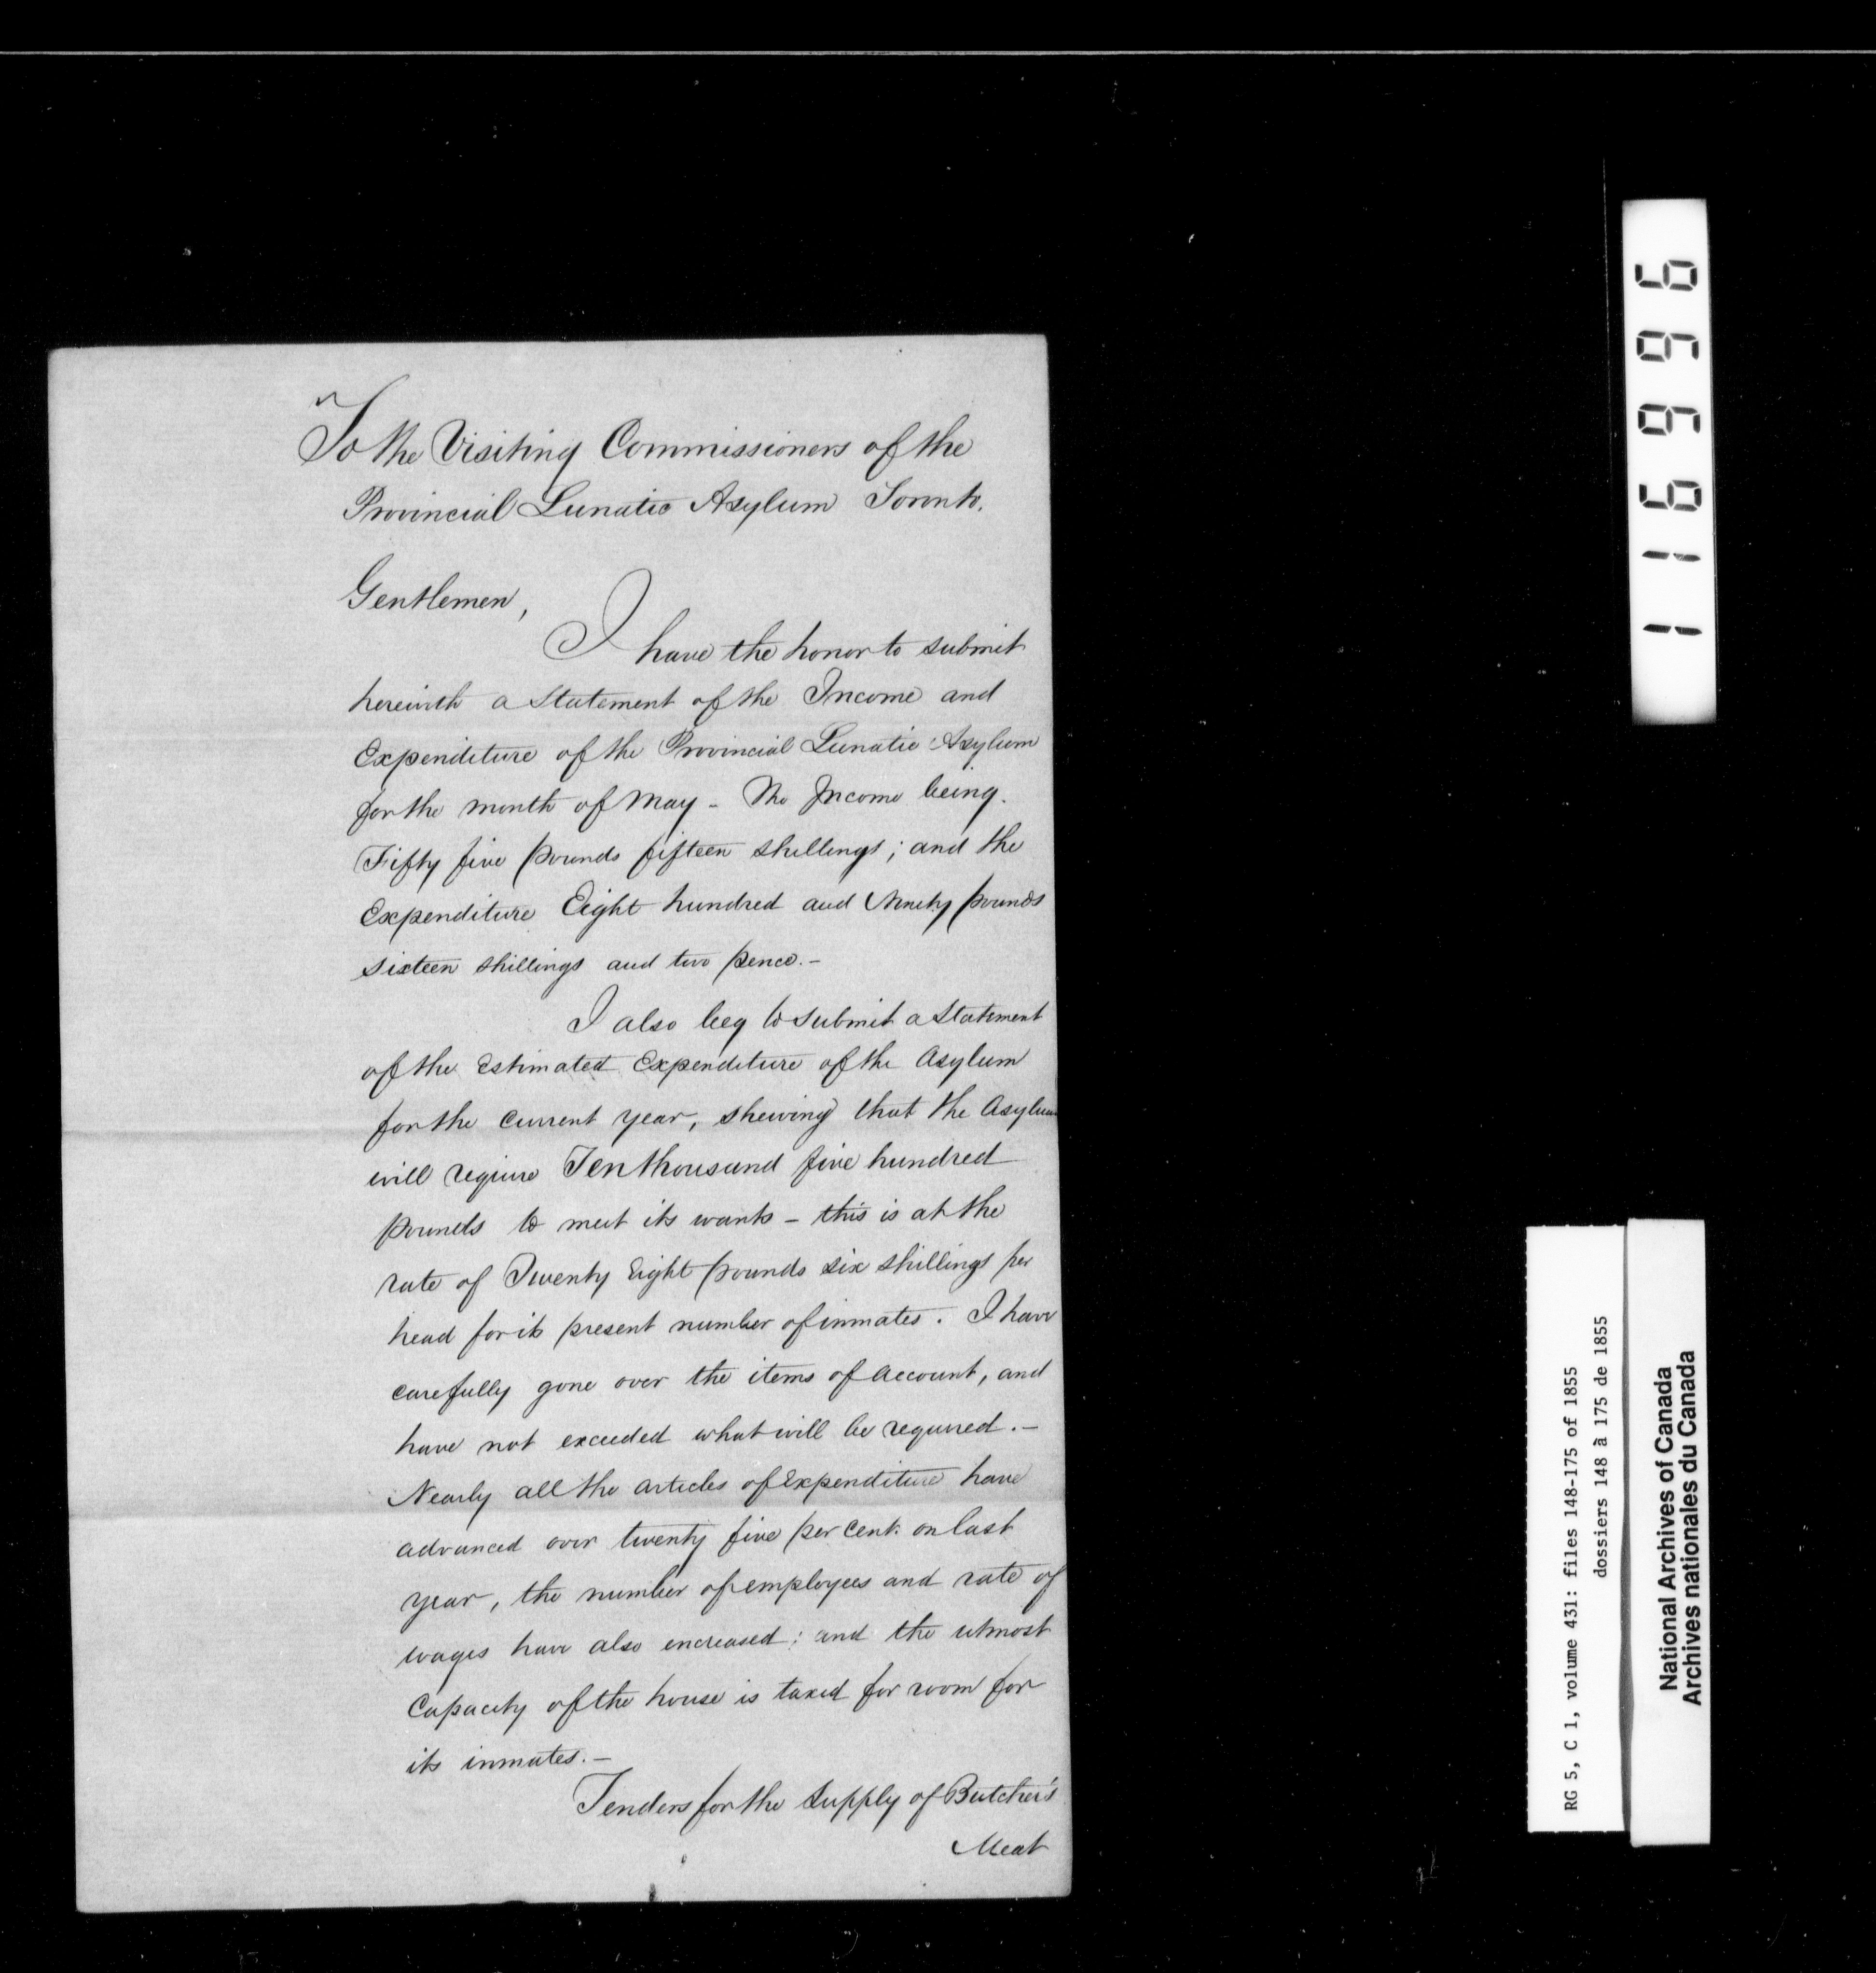 To the Visiting Commissioners of the
Provincial Lunatic Asylum Toronto.
Gentlemen,
I have the honor to submit
herewith a Statement of the Income and
Expenditure of the Provincial Lunatic Asylum
for the month of May - The Income being
Fifty five pounds fifteen shillings; and the
Expenditure Eight hundred and Ninety pounds
sixteen shillings and two pence. -
I also beg to submit a Statement
of the Estimated Expenditure of the Asylum
for the current year, shewing that the Asylum
will require Ten thousand five hundred
pounds to meet its wants - this is at the
rate of Twenty Eight pounds six shillings per
head for its present number of inmates. I have
carefully gone over the items of account, and
have not exceeded what will be required. -
Nearly all the articles of Expenditure have
advanced over twenty five per cent. on last
year, the number of employees and rate of
wages have also encreased; and the utmost
capacity of the house is taxed for room for
its inmates. -
Tenders for the supply of Butcher's
Meat
116996
RG 5, C 1, volume 431: files 148-175 of 1855
dossiers 148 à 175 de 1855
National Archives of Canada
Archives nationales du Canada